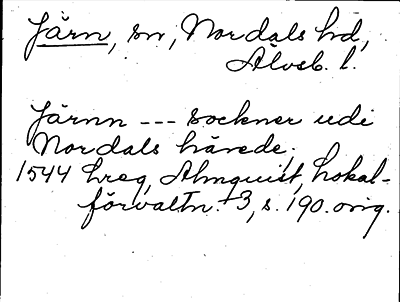 Järn, sn, Nordals hd,
Älvsb. l.
Järnn --- sockner udi
Nordals härede.
1544 hreg, Almquist, Lokal-
förvaltn. 3, s. 190. orig.